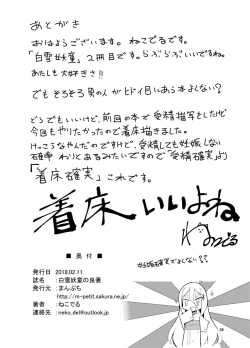 あとがき
おはようございます。ねこでるです。
「白雪妖童」2冊目です。らぶらぶいいですね。
あたしも大好きさ!!
でもそろそろ男の人がヒドイ目にあう本よくない?
どうでもいいけど、前回の本で受精描写をしたけど
今回もやりたかったので着床描きました。
けっこうなやんだのですけど、受精しても妊娠しない
確率わりとあるみたいですので「受精確実」より
「着床確実」これです。
着床いいよね
ねこでる
妊娠確実でよくない??
■ 奥 付 ■
発行日 :2018.02.11
誌名 :白雪妖童の良妻
発行元 :まんぷち
:http://m-petit.sakura.ne.jp/
著者 :ねこでる
連絡先 :neko_del@outlook.jp